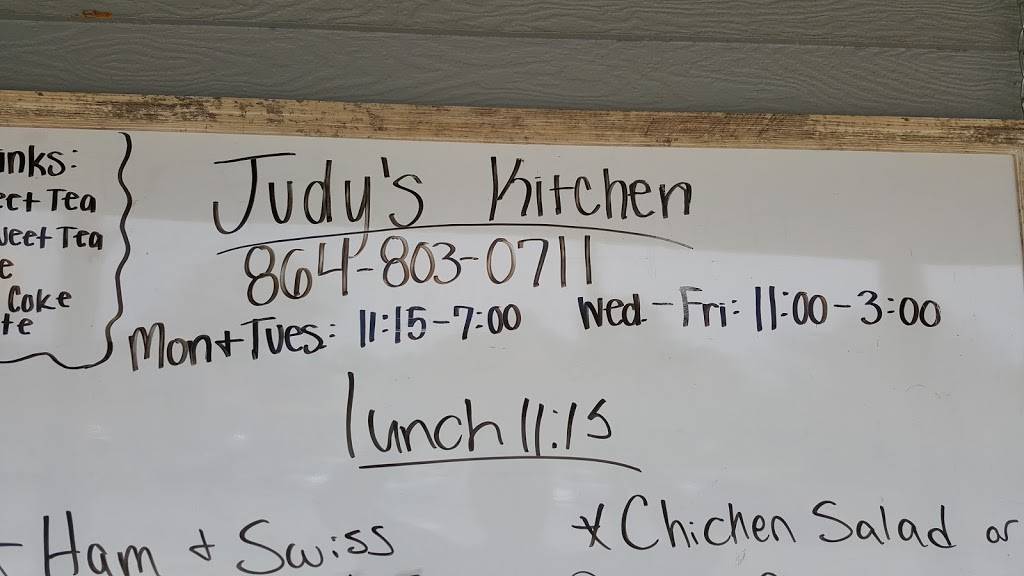 inks:
ect Tea
weet Tea
e
Coke
te
Judy's Kitchen
864-803-0711
Mon + Tues: 11:15-7:00 Wed - Fri: 11:00-3:00
lunch 11:15
- Ham + Swiss
* Chichen Salad or